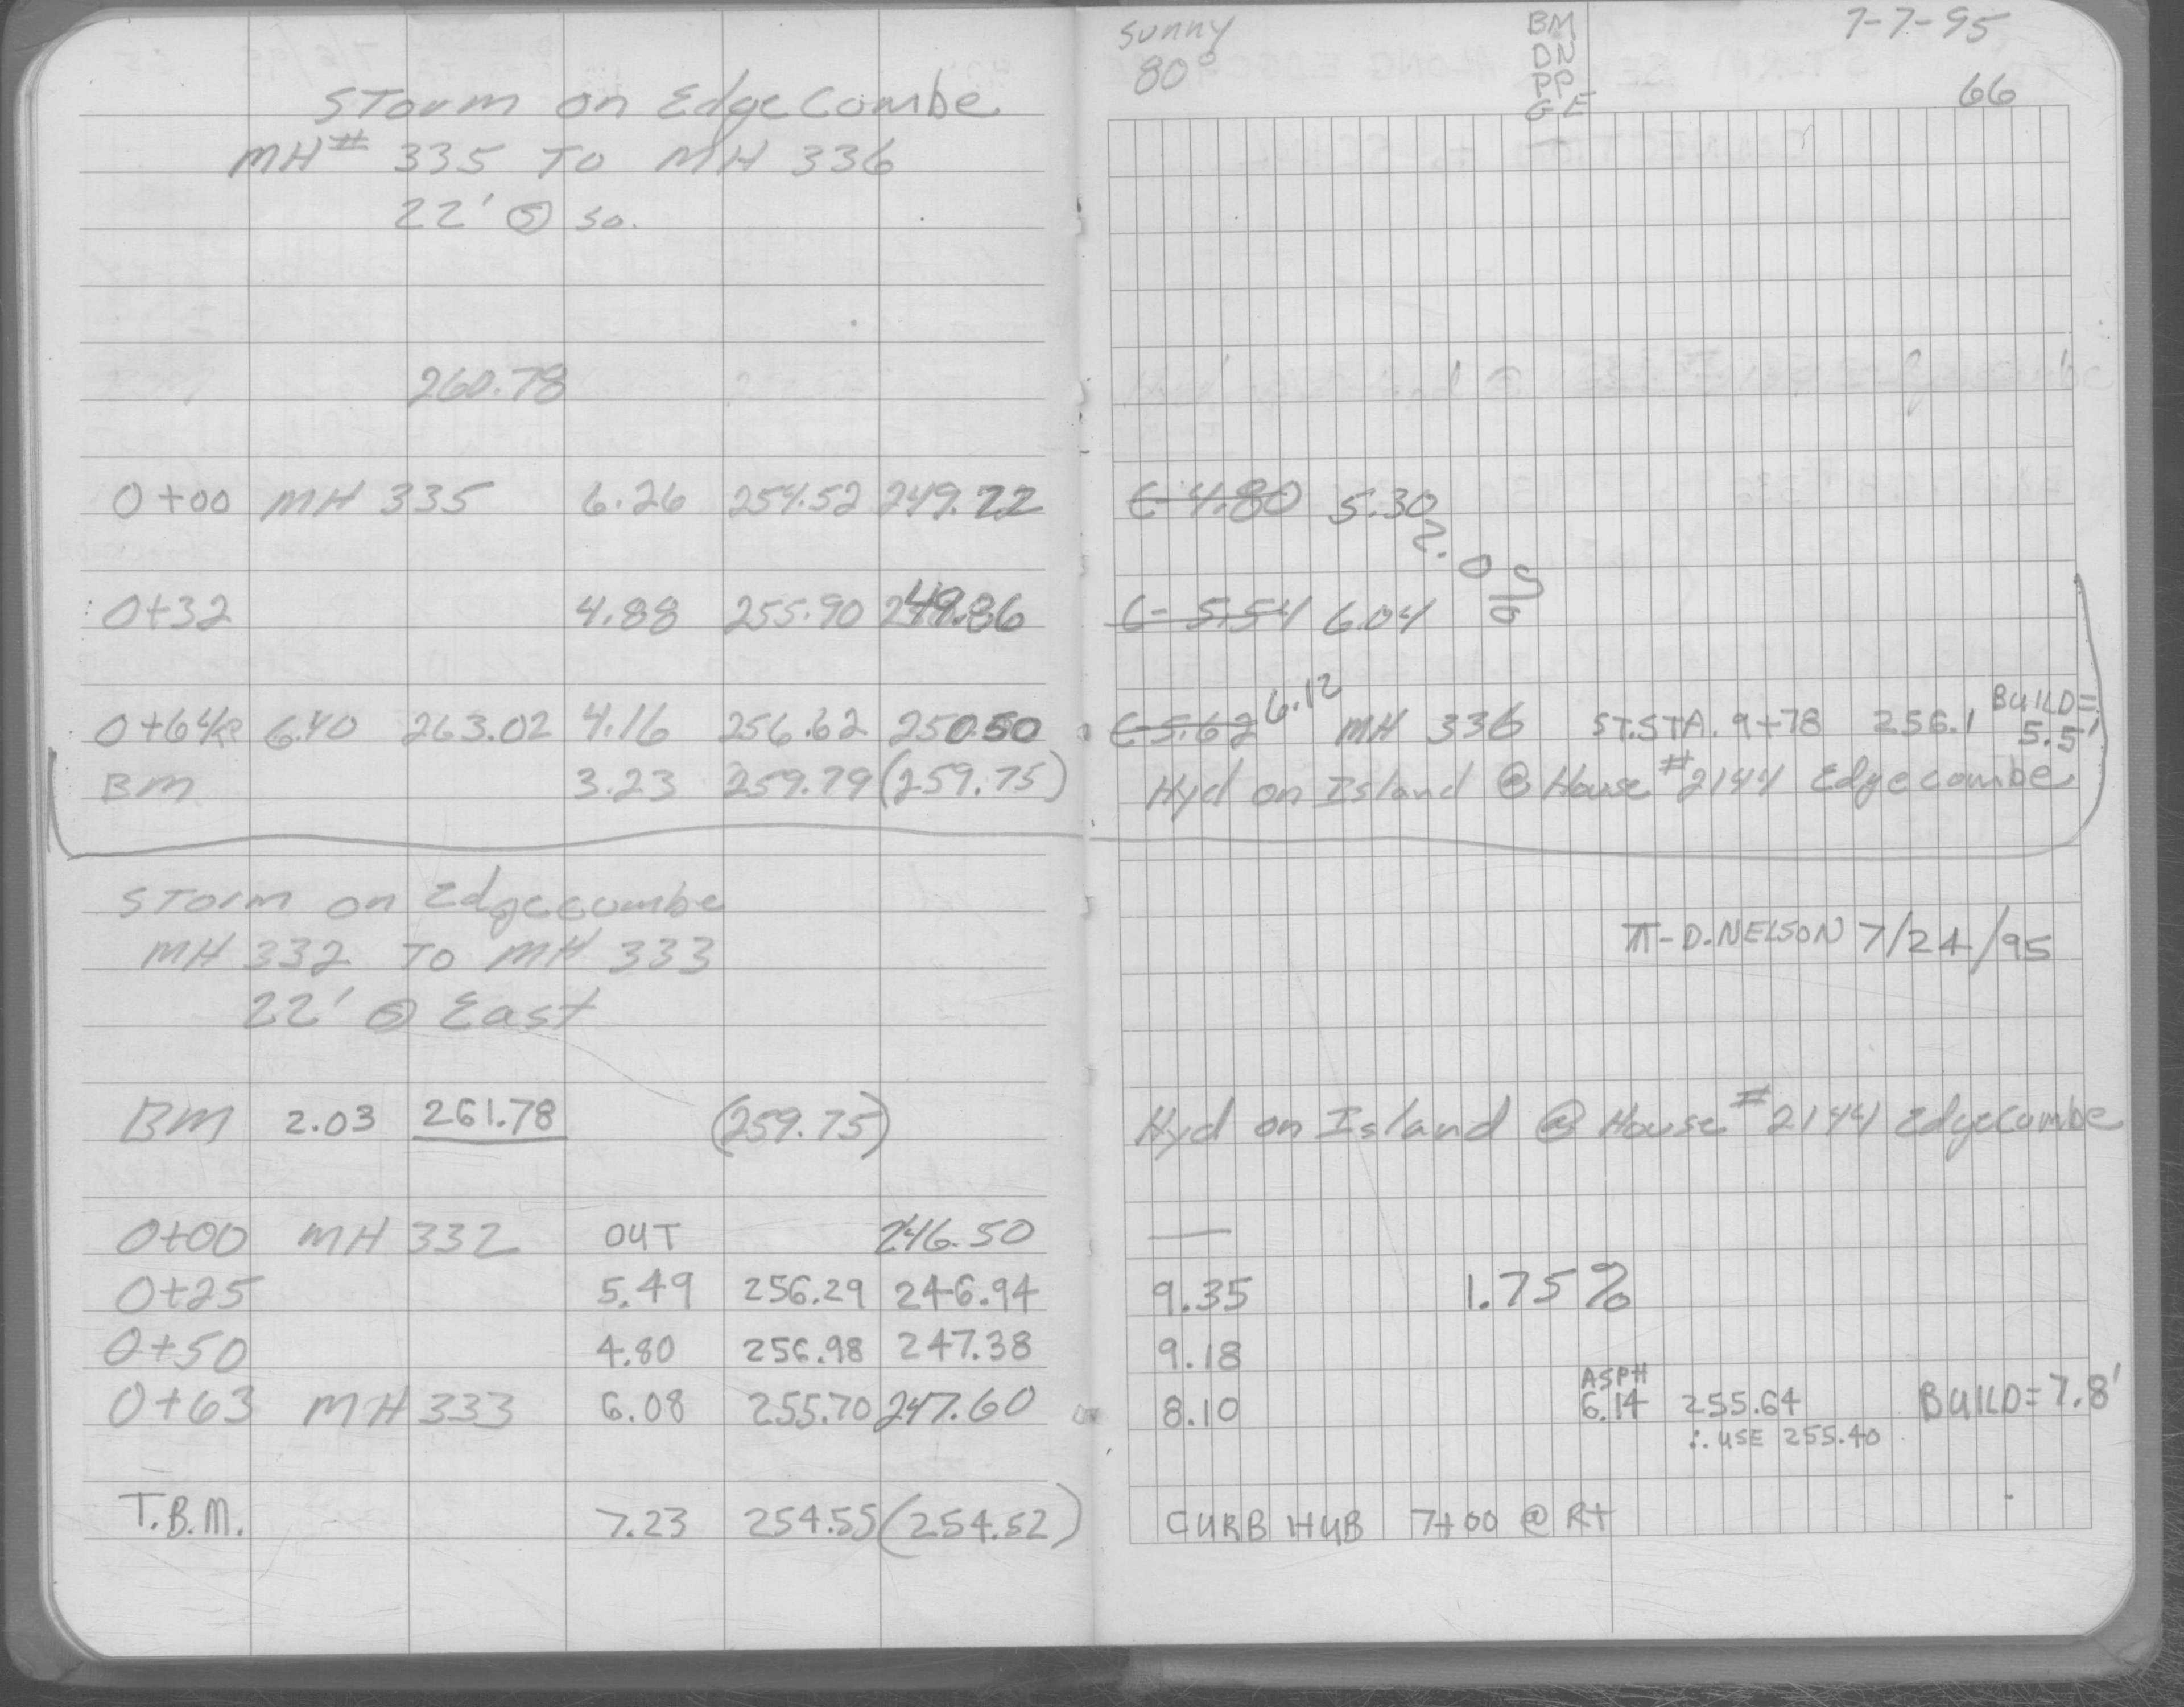 Storm on Edgecombe
MH# 335 TO MH 336
22' @ so.
260.78
0+00 MH 335 6.26 254.52 249.22
0+32 4.88 255.90 249.86
0+64 6.40 263.02 4.16 256.62 250.50
BM 3.23 259.79 (259.75)
Storm on Edgecumbe
MH 332 TO MH 333
22' @ East
BM 2.03 261.78 (259.75)
0+00 MH 332 OUT 246.50
0+25 5.49 256.29 246.94
0+50 4.80 256.98 247.38
0+63 MH 333 6.08 255.70 247.60
T.B.M. 7.23 254.55 (254.52)
sunny BM 7-7-95
80° DN
PP 66
GE
C-4.80 5.30
2.0%
C-5.54 6.04
C-5.62 6.12 MH 336 ST.STA. 9+78 256.1 BUILD= 5.5'
Hyd on Island @ House #2144 Edgecombe
π-D.NELSON 7/24/95
Hyd on Island @ House #2144 Edgecumbe
—
9.35 1.75%
9.18
ASPH
8.10 6.14 255.64 BUILD=7.8'
∴ USE 255.40
CURB HUB 7+00 @ Rt